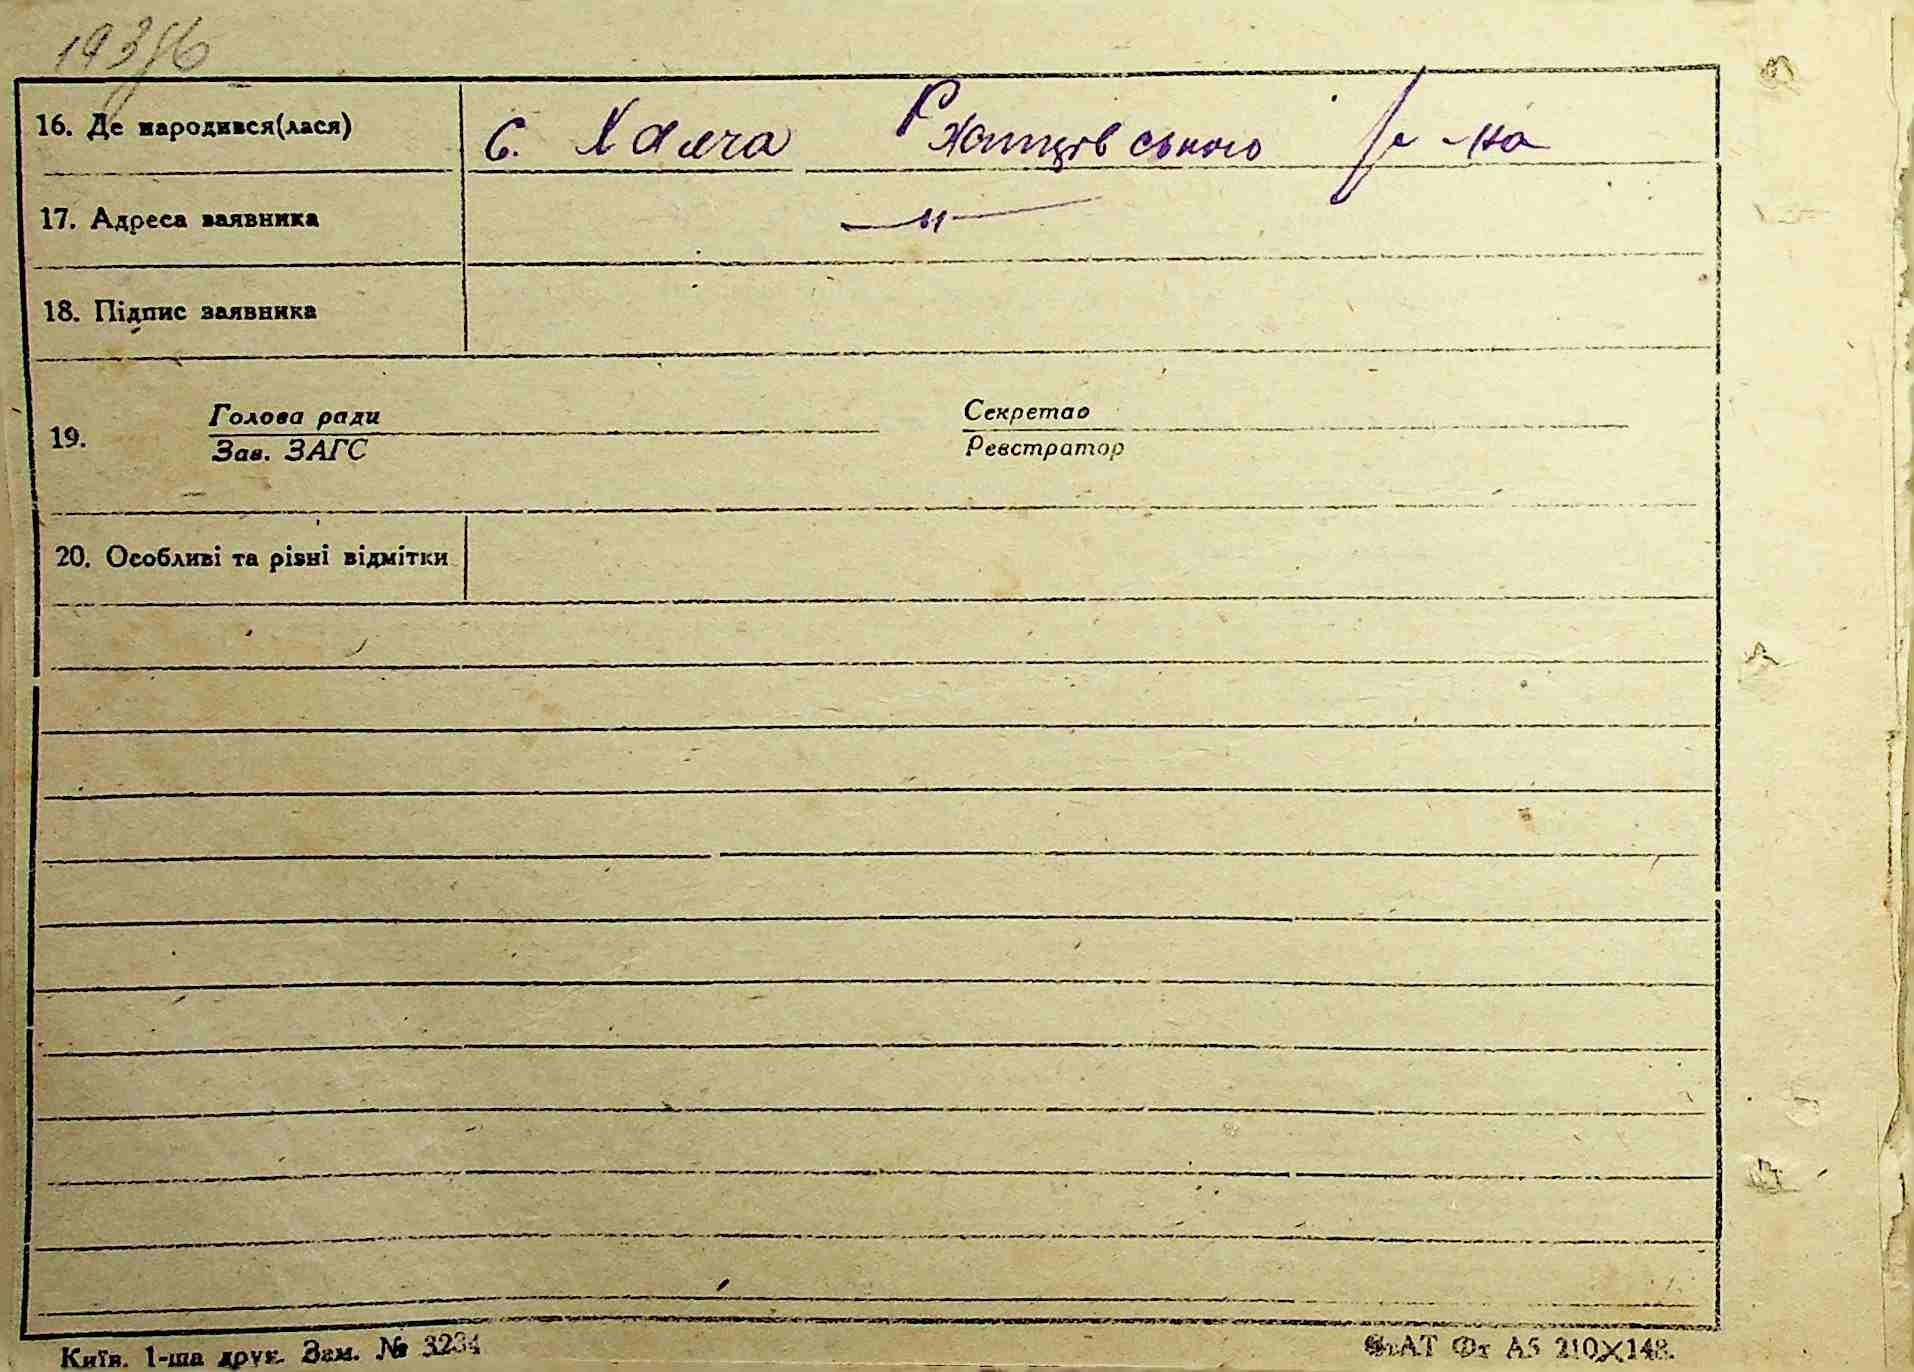 16. Де народився(лася) с. Халча Ржищівського р-на
17. Адреса заявника —"—
18. Підпис заявника
19. Голова ради Секретар
Зав. ЗАГС Реєстратор
20. Особливі та різні відмітки
Київ. 1-ша друк. Зам. № 3234 Ф. А5 210×148.